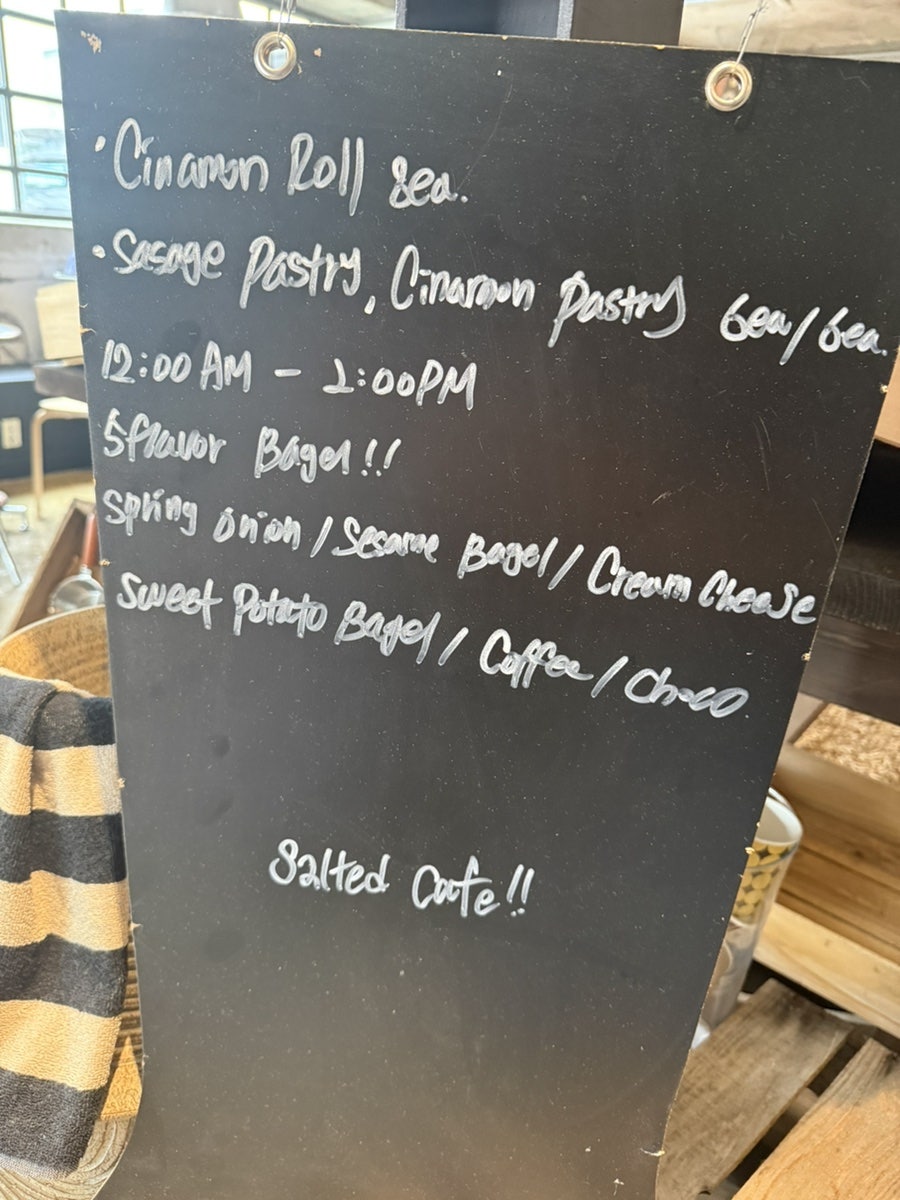 · Cinamon Roll 8ea.
· Sasage Pastry, Cinamon Pastry 6ea/6ea.
12:00AM - 2:00PM
5flavor Bagel!!
Spring onion / Sesame Bagel / Cream Cheese
Sweet Potato Bagel / Coffee / Choco
Salted Cafe!!